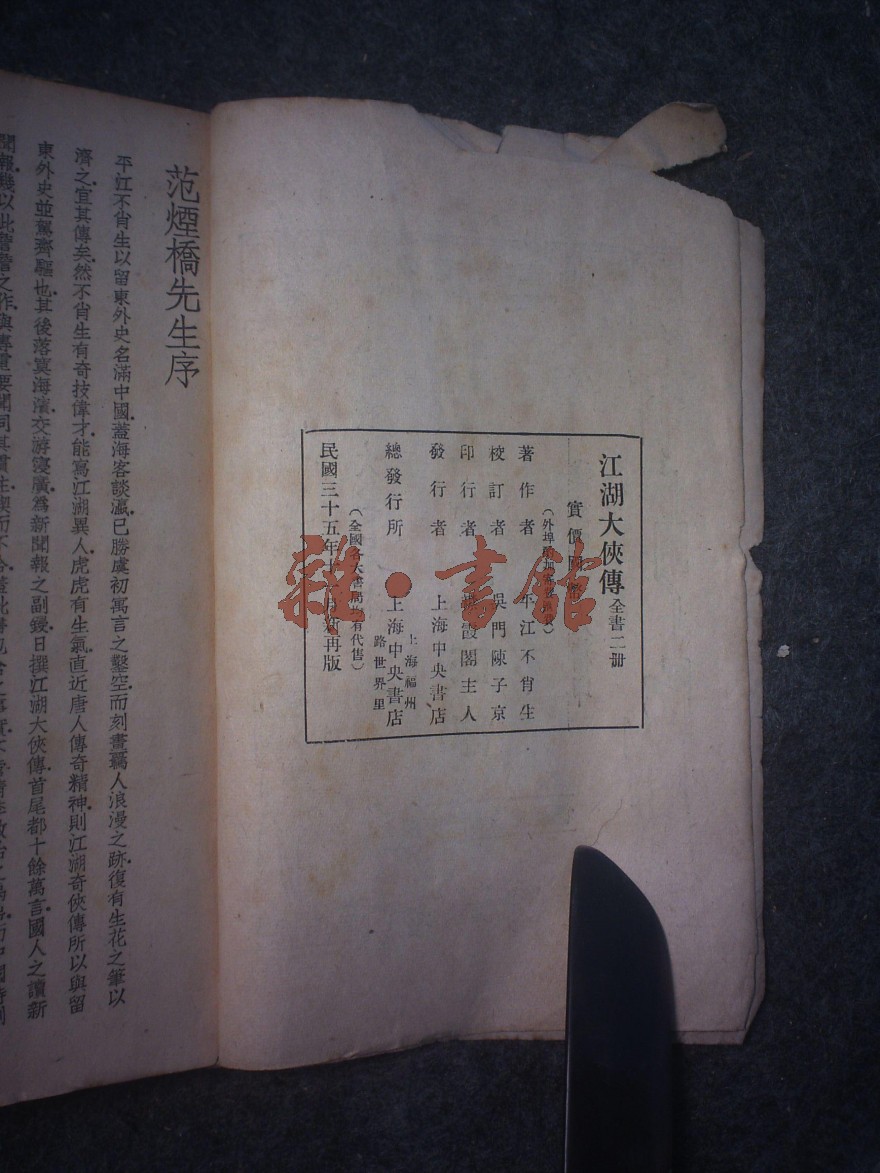 江湖大俠傳 全書二冊
實價國幣
（外埠酌加
著作者 平江不肖生
校訂者 吳門陳子京
印行者 霞閣主人
發行者 上海中央書店
總發行所 上海中央書店
上海福州
路世界里
（全國各大書局均有代售）
民國三十五年十 月新再版
雜·書館
范煙橋先生序
平江不肖生以留東外史名滿中國．蓋海客談瀛．已勝虞初寓言之鑿空．而刻畫爲人浪漫之跡．復有生花之筆以
濟之．宜其傳矣．然不肖生有奇技偉才．能寫江湖異人．虎虎有生氣．直近唐人傳奇精神．則江湖奇俠傳所以與留
東外史並駕齊驅也．其後落寞海濱．交游寖廣．爲新聞報之副鋟．日撰江湖大俠傳．首尾都十餘萬言．國人之讀新
聞報．幾以此